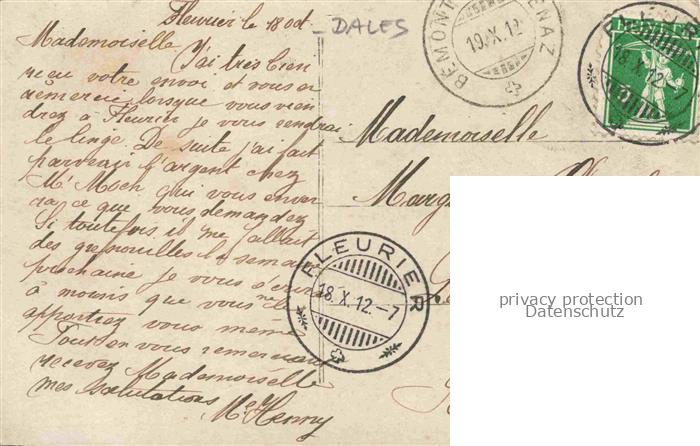 Fleurier le 18 oct.
Mademoiselle J'ai très bien
reçu votre envoi et vous en
remercie lorsque vous vien
drez à Fleurier je vous rendrai
le linge. De suite j'ai fait
parvenir l'argent chez
Mr Moch qui vous enver
ra ce que vous demandez
Si toutefois il me fallait
des grenouilles la semaine
prochaine je vous s'écrirai
à moins que vous me les
apportiez vous même
Tout en vous remerciant
recevez Mademoiselle
mes salutations
Me Henny
DALES
BÉMONT
19.X.12
18.X.12
Mademoiselle
Marg
FLEURIER
18.X.12.-7
privacy protection
Datenschutz